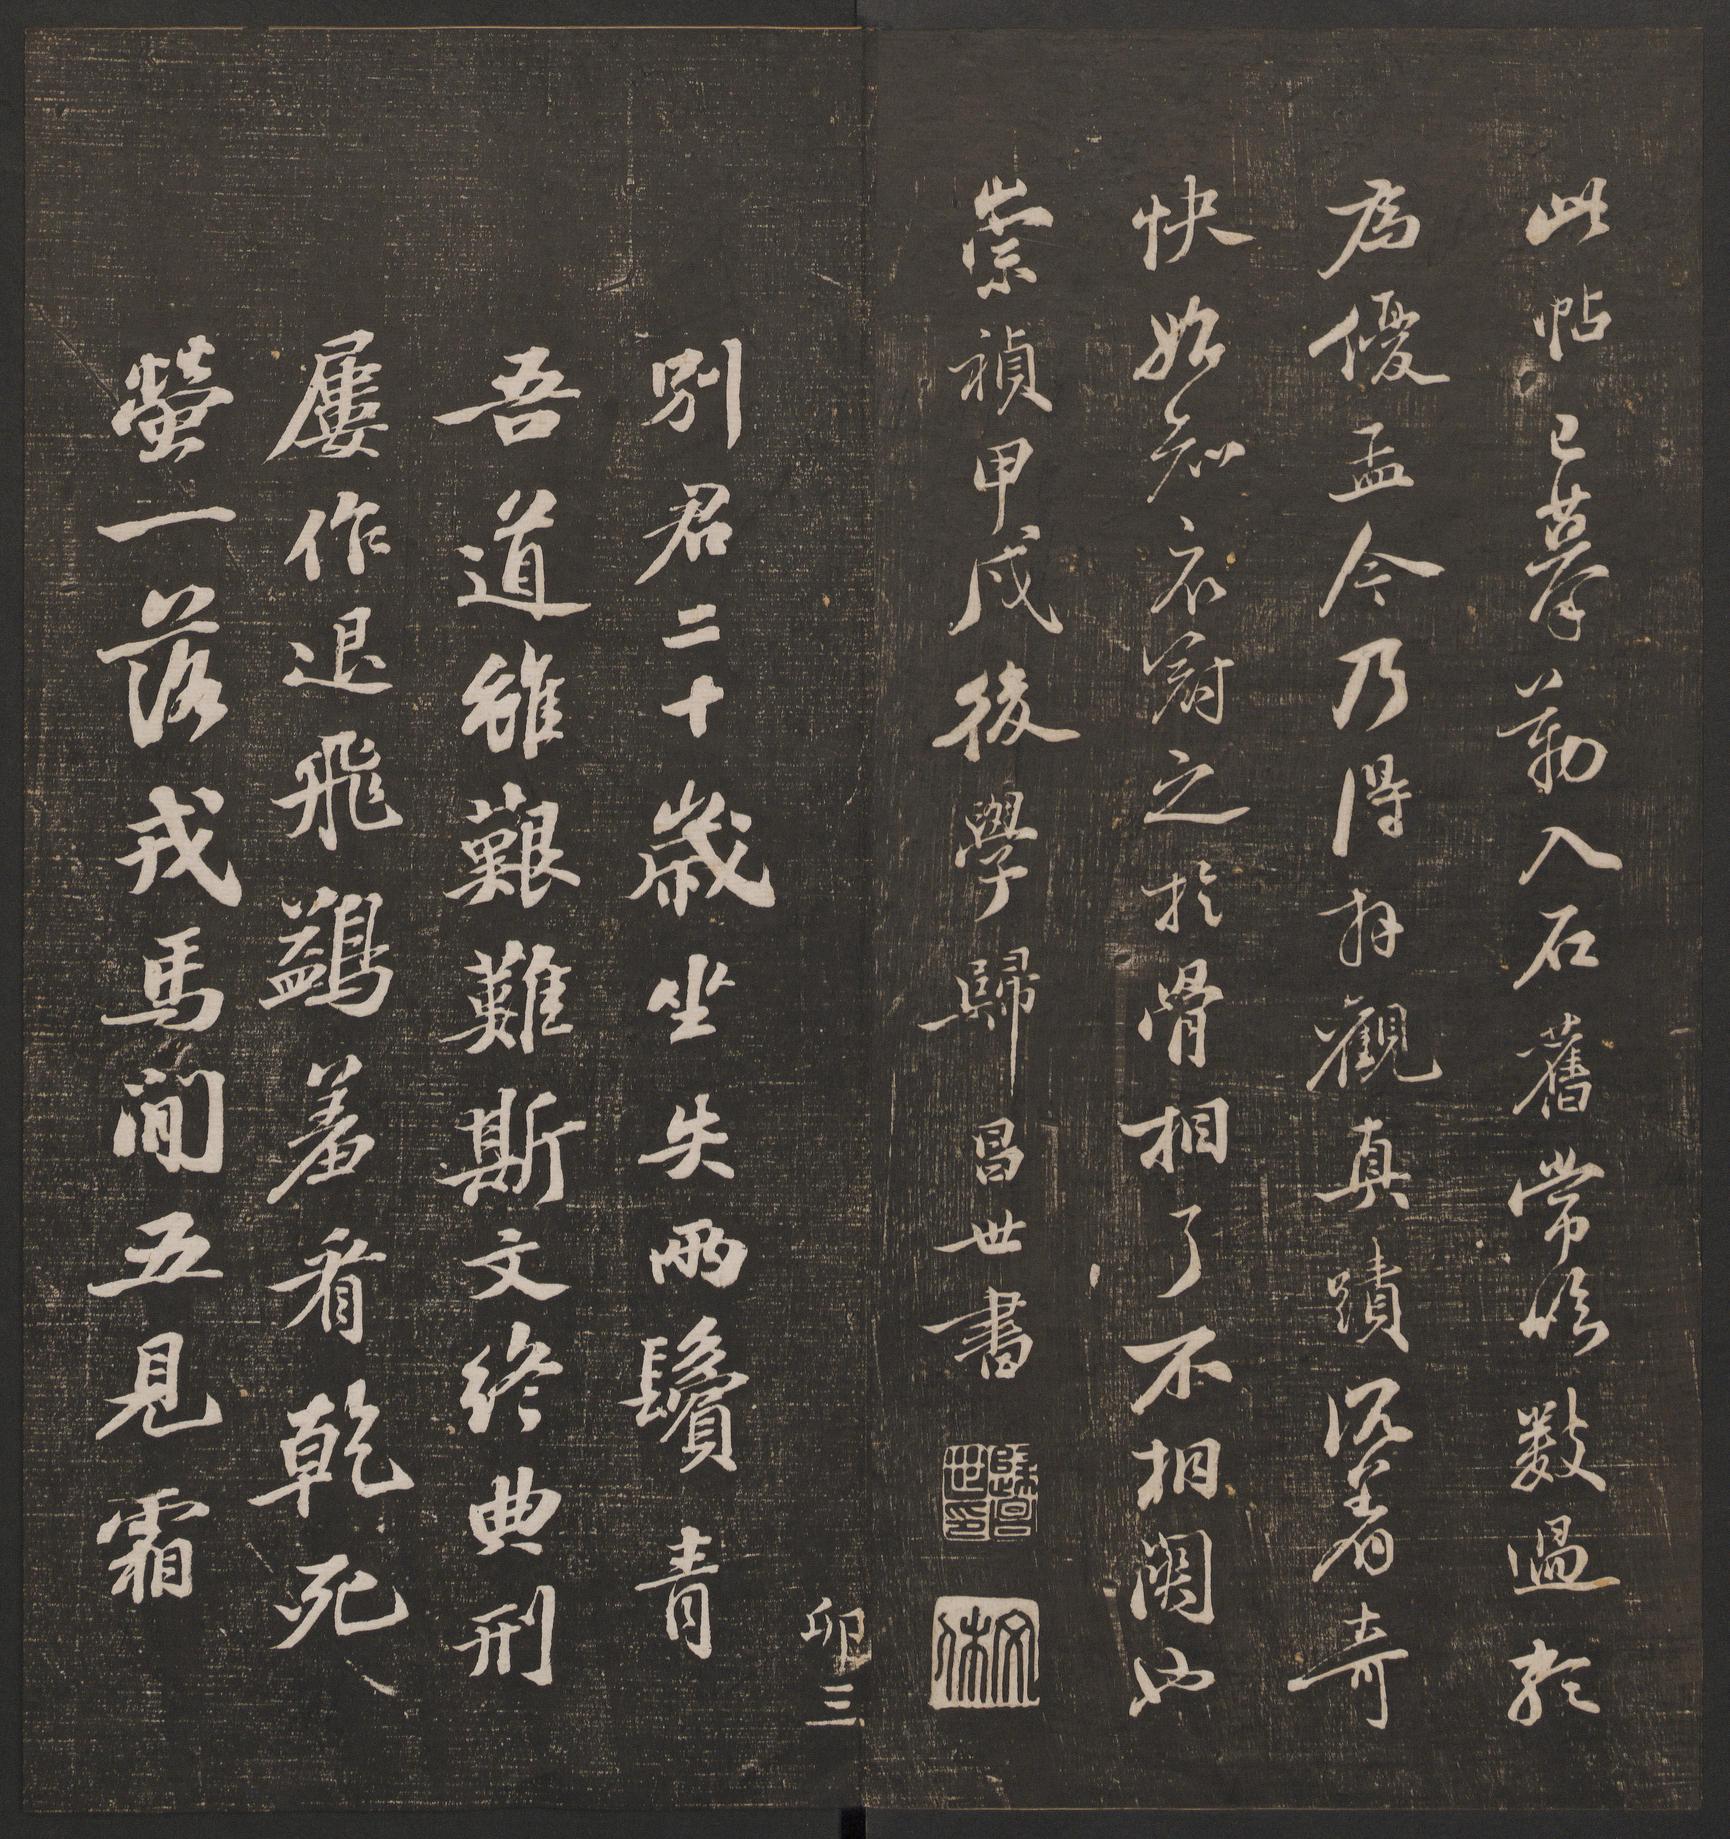 此帖已摹勒入石舊常臨數過形
為優孟今乃得拜觀真蹟沉著奇
快始知衣冠之於骨相了不相關也
崇禎甲戌後學歸昌世書
歸昌世印
文休
卯三
別君二十歲坐失兩鬢青
吾道雖艱難斯文終典刑
屢作退飛鷁羞看乾死
螢一落戎馬間五見霜